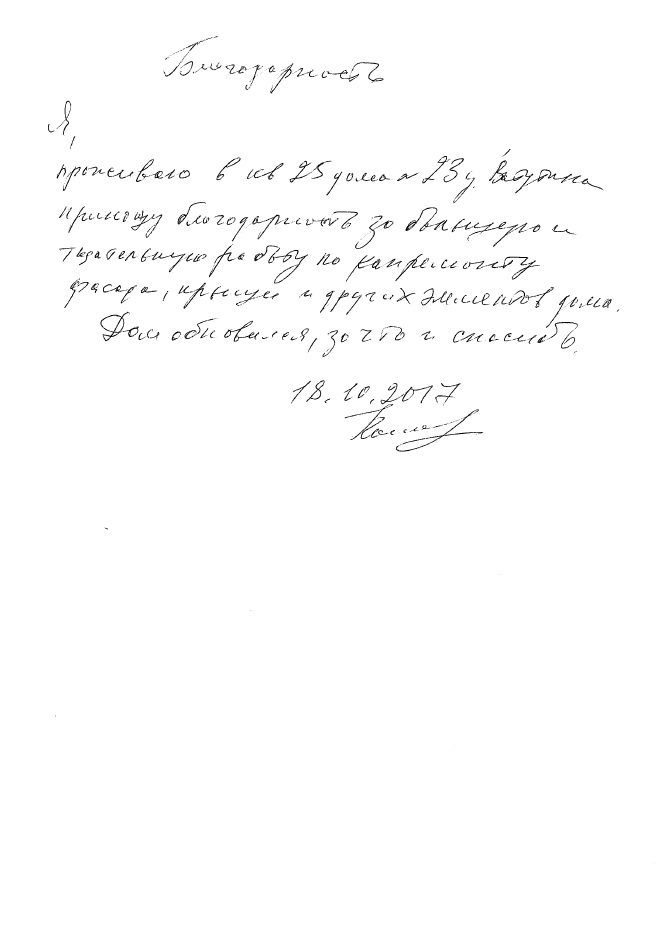 Благодарность
Я,
проживаю в кв 25 дома № 23 у. Ватутина
приношу благодарность за большую и
тщательную работу по капремонту
фасада, крыши и других элементов дома.
Дом обновился, за что и спасибо.
18.10.2017